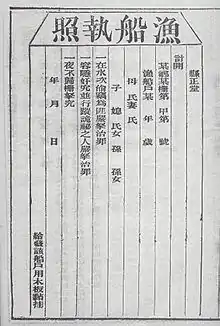 漁船執照
縣正堂
計開
某澳某柵第 甲第 號
漁船戶某 年 歲
母氏妻氏
子 媳氏女 孫 孫女
一在水次偷竊為匪嚴拏治罪
一容隱奸宄並行蹤詭祕之人嚴拏治罪
一夜不歸柵拏究
年 月 日
給發該船戶用木板黏挂